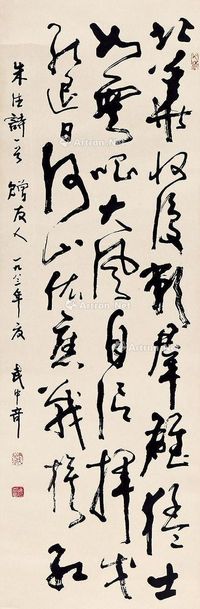 北華收復賴群雄猛士
如雲唱大風自信揮戈
能退日河山依舊戰旗紅
朱德詩一首 贈友人 一九八三年夏 武中奇